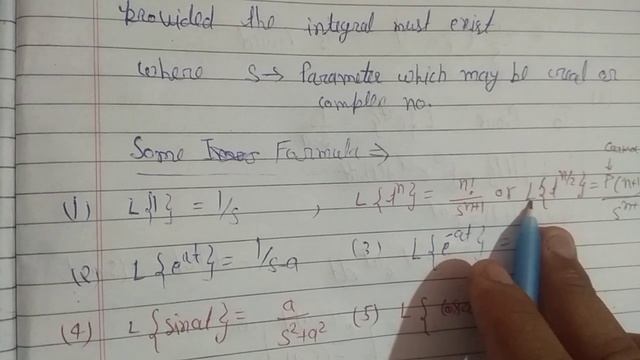 provided the integral must exist
where s→ Parameter which may be real or
complex no.
Some Formula ⇒
(1) L{1} = 1/s , L{t^n} = n!/s^{n+1} or L{t^{n/2}} = Γ(n+1
(2) L{e^{at}} = 1/s-a (3) L{e^{-at}} =
(4) L{sinat} = a/s²+a² (5) L{